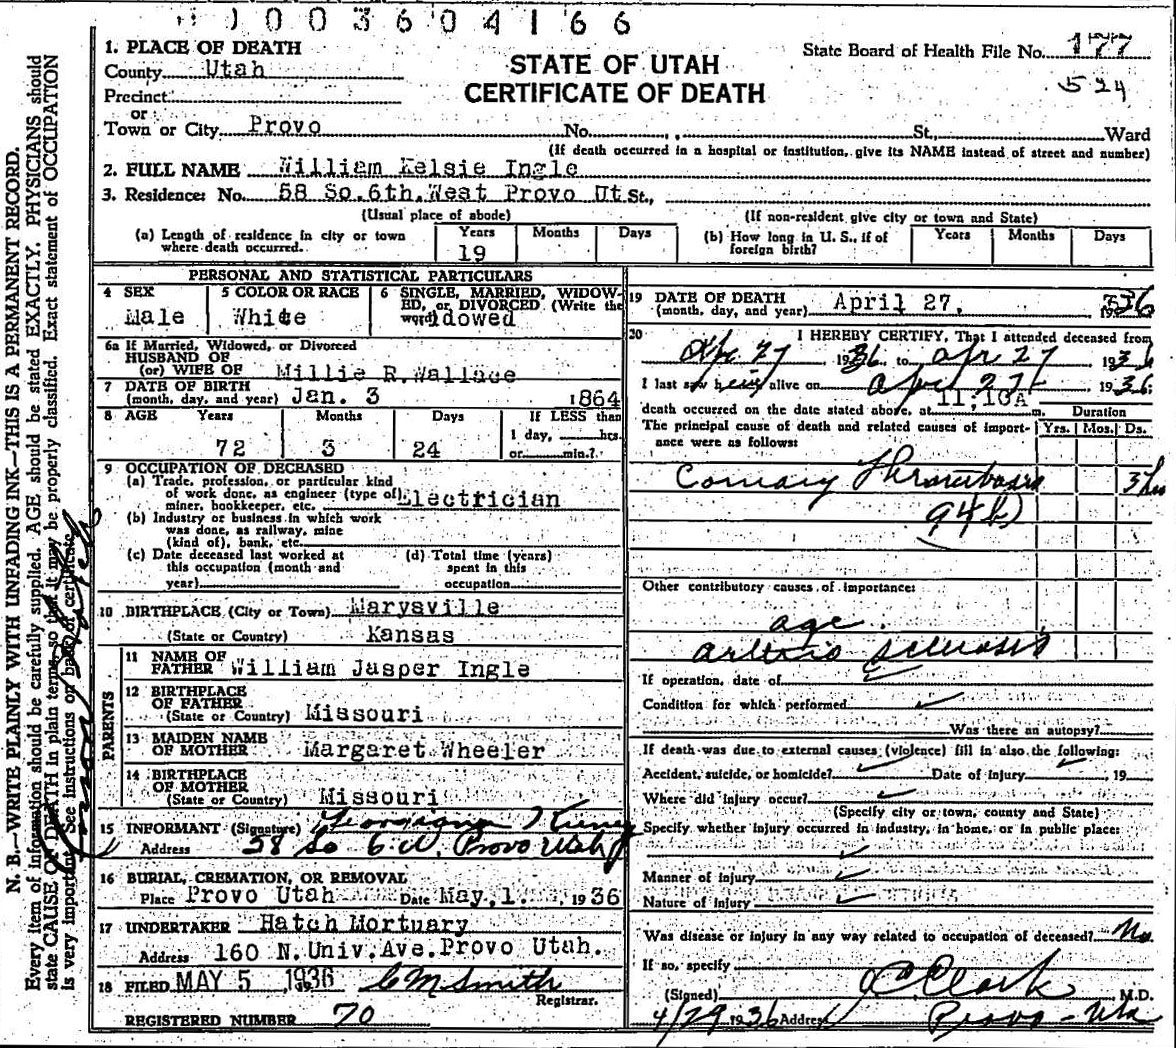 0 0 3 6 0 4 1 6 6
1. PLACE OF DEATH
County Utah
Precinct
or
Town or City Provo No. , St. Ward
STATE OF UTAH
CERTIFICATE OF DEATH
State Board of Health File No. 177
524
(If death occurred in a hospital or institution, give its NAME instead of street and number)
2. FULL NAME William Kelsie Ingle
3. Residence: No. 58 So.6th.West Provo Ut St.,
(Usual place of abode) (If non-resident give city or town and State)
(a) Length of residence in city or town where death occurred. Years 19 Months Days
(b) How long in U. S., if of foreign birth? Years Months Days
PERSONAL AND STATISTICAL PARTICULARS
4 SEX Male
5 COLOR OR RACE White
6 SINGLE, MARRIED, WIDOWED, or DIVORCED (Write the word) idowed
6a If Married, Widowed, or Divorced
HUSBAND OF
(or) WIFE OF Millie R.Wallace
7 DATE OF BIRTH
(month, day, and year) Jan. 3 1864
8 AGE Years 72 Months 3 Days 24
If LESS than
1 day, hrs.
or min.?
9 OCCUPATION OF DECEASED
(a) Trade, profession, or particular kind
of work done, as engineer (type of)
miner, bookkeeper, etc. Electrician
(b) Industry or business in which work
was done, as railway, mine
(kind of), bank, etc.
(c) Date deceased last worked at
this occupation (month and
year)
(d) Total time (years)
spent in this
occupation
10 BIRTHPLACE (City or Town) Marysville
(State or Country) Kansas
PARENTS
11 NAME OF
FATHER William Jasper Ingle
12 BIRTHPLACE
OF FATHER
(State or Country) Missouri
13 MAIDEN NAME
OF MOTHER Margaret Wheeler
14 BIRTHPLACE
OF MOTHER
(State or Country) Missouri
15 INFORMANT (Signature)
Address 58 So 6 W. Provo Utah
16 BURIAL, CREMATION, OR REMOVAL
Place Provo Utah Date May,1. 1936
17 UNDERTAKER Hatch Mortuary
Address 160 N.Univ.Ave.Provo Utah.
18 FILED MAY 5 1936 C M Smith
Registrar.
REGISTERED NUMBER 70
19 DATE OF DEATH
(month, day, and year) April 27, 1936
20 I HEREBY CERTIFY, That I attended deceased from
Apr 27 1936 to Apr 27 1936
I last saw him alive on Apr 27 1936
death occurred on the date stated above, at 11,10A m. Duration
The principal cause of death and related causes of importance were as follows: Yrs. Mos. Ds.
Coronary Thrombosis 3 hrs
94b)
Other contributory causes of importance:
age.
arterio sclerosis
If operation, date of
Condition for which performed
Was there an autopsy?
If death was due to external causes (violence) fill in also the following:
Accident, suicide, or homicide? Date of injury , 19
Where did injury occur?
(Specify city or town, county and State)
Specify whether injury occurred in industry, in home, or in public place:
Manner of injury
Nature of injury
Was disease or injury in any way related to occupation of deceased? No
If so, specify
(Signed) C Clark M.D.
4/29 1936 Address Provo - Utah
N. B.—WRITE PLAINLY WITH UNFADING INK—THIS IS A PERMANENT RECORD.
Every item of information should be carefully supplied. AGE should be stated EXACTLY. PHYSICIANS should
state CAUSE OF DEATH in plain terms, so that it may be properly classified. Exact statement of OCCUPATION
is very important. See instructions on back of certificate.